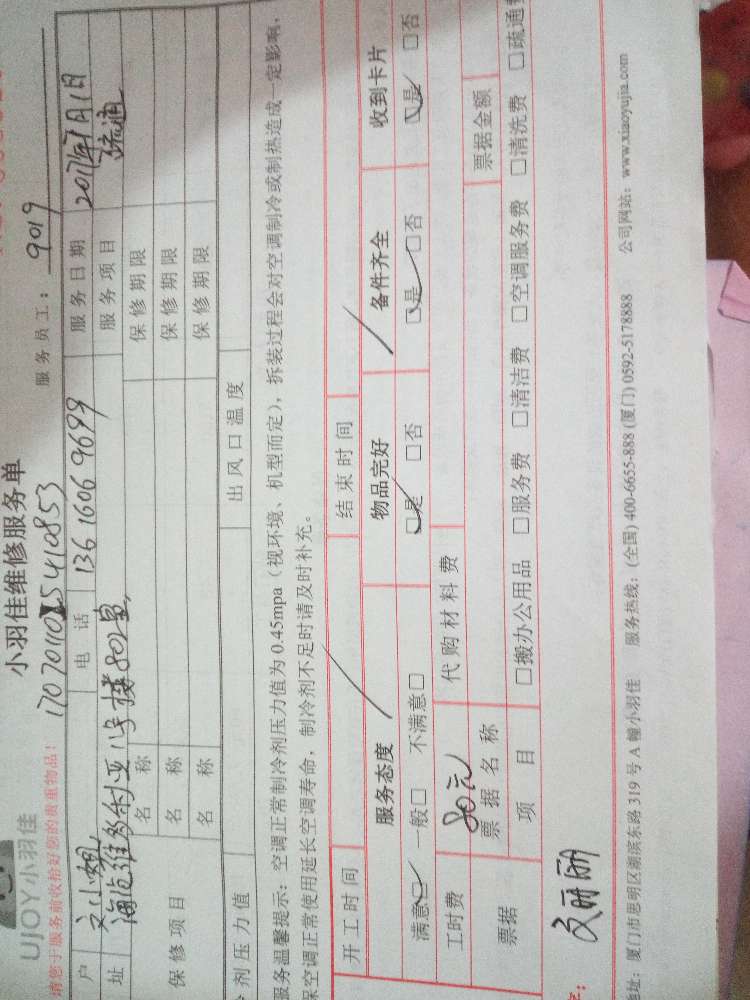 UJOY小羽佳
小羽佳维修服务单
请您于服务前收拾好您的贵重物品!
服务员工: 9019
户 文小姐 电话 136 1606 9699 服务日期 2017年1月1日
址 海沧维多利亚1号楼802室 服务项目 疏通
保修项目
名称 保修期限
名称 保修期限
名称 保修期限
剂压力值 出风口温度
服务温馨提示:空调正常制冷剂压力值为0.45mpa(视环境、机型而定),拆装过程会对空调制冷或制热造成一定影响,
保空调正常使用延长空调寿命,制冷剂不足时请及时补充。
开工时间 结束时间
服务态度 物品完好 备件齐全 收到卡片
满意☑ 一般□ 不满意□ ☑是 □否 ☑是 □否 ☑是 □否
工时费 80元 代购材料费
票据 票据名称 票据金额
项目 □搬办公用品 □服务费 □清洁费 □空调服务费 □清洗费 □疏通费
文丽丽
地址:厦门市思明区湖滨东路319号A幢小羽佳 服务热线:(全国)400-6655-888 (厦门)0592-5178888 公司网站:www.xiaoyujia.com